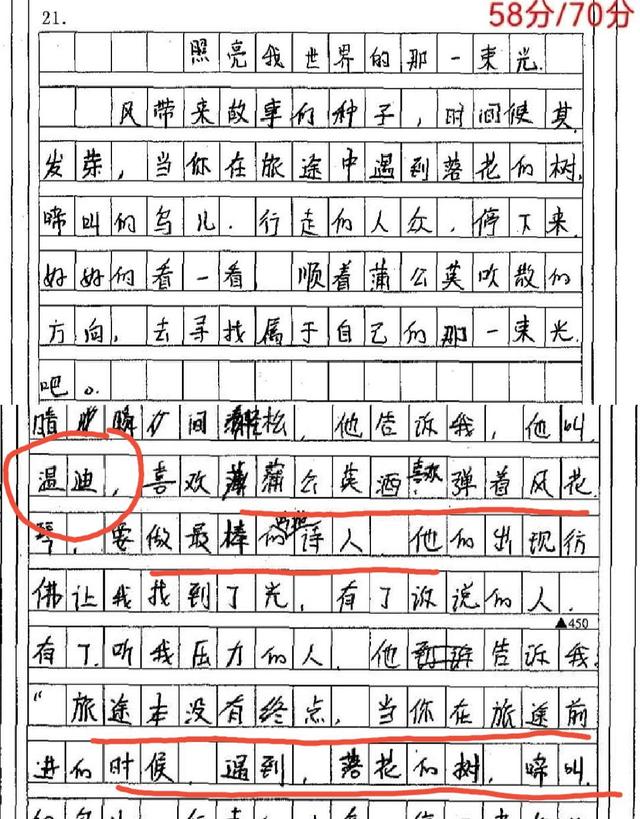 21.
58分/70分
照亮我世界的那一束光.
风带来故事的种子，时间候其
发芽，当你在旅途中遇到落花的树.
啼叫的鸟儿.行走的人众，停下来.
好好的看一看 顺着蒲公英吹散的
方向，去寻找属于自己的那一束光.
吧。
间 松，他告诉我，他叫.
温迪，喜欢蒲公英酒喜欢弹着风花.
琴，要做最棒的诗人 他的出现彷
佛让我找到了光，有了诉说的人.
▲450
有了听我压力的人.他告诉我:
“旅途本没有终点，当你在旅途前
进的时候 遇到，落花的树，啼叫.